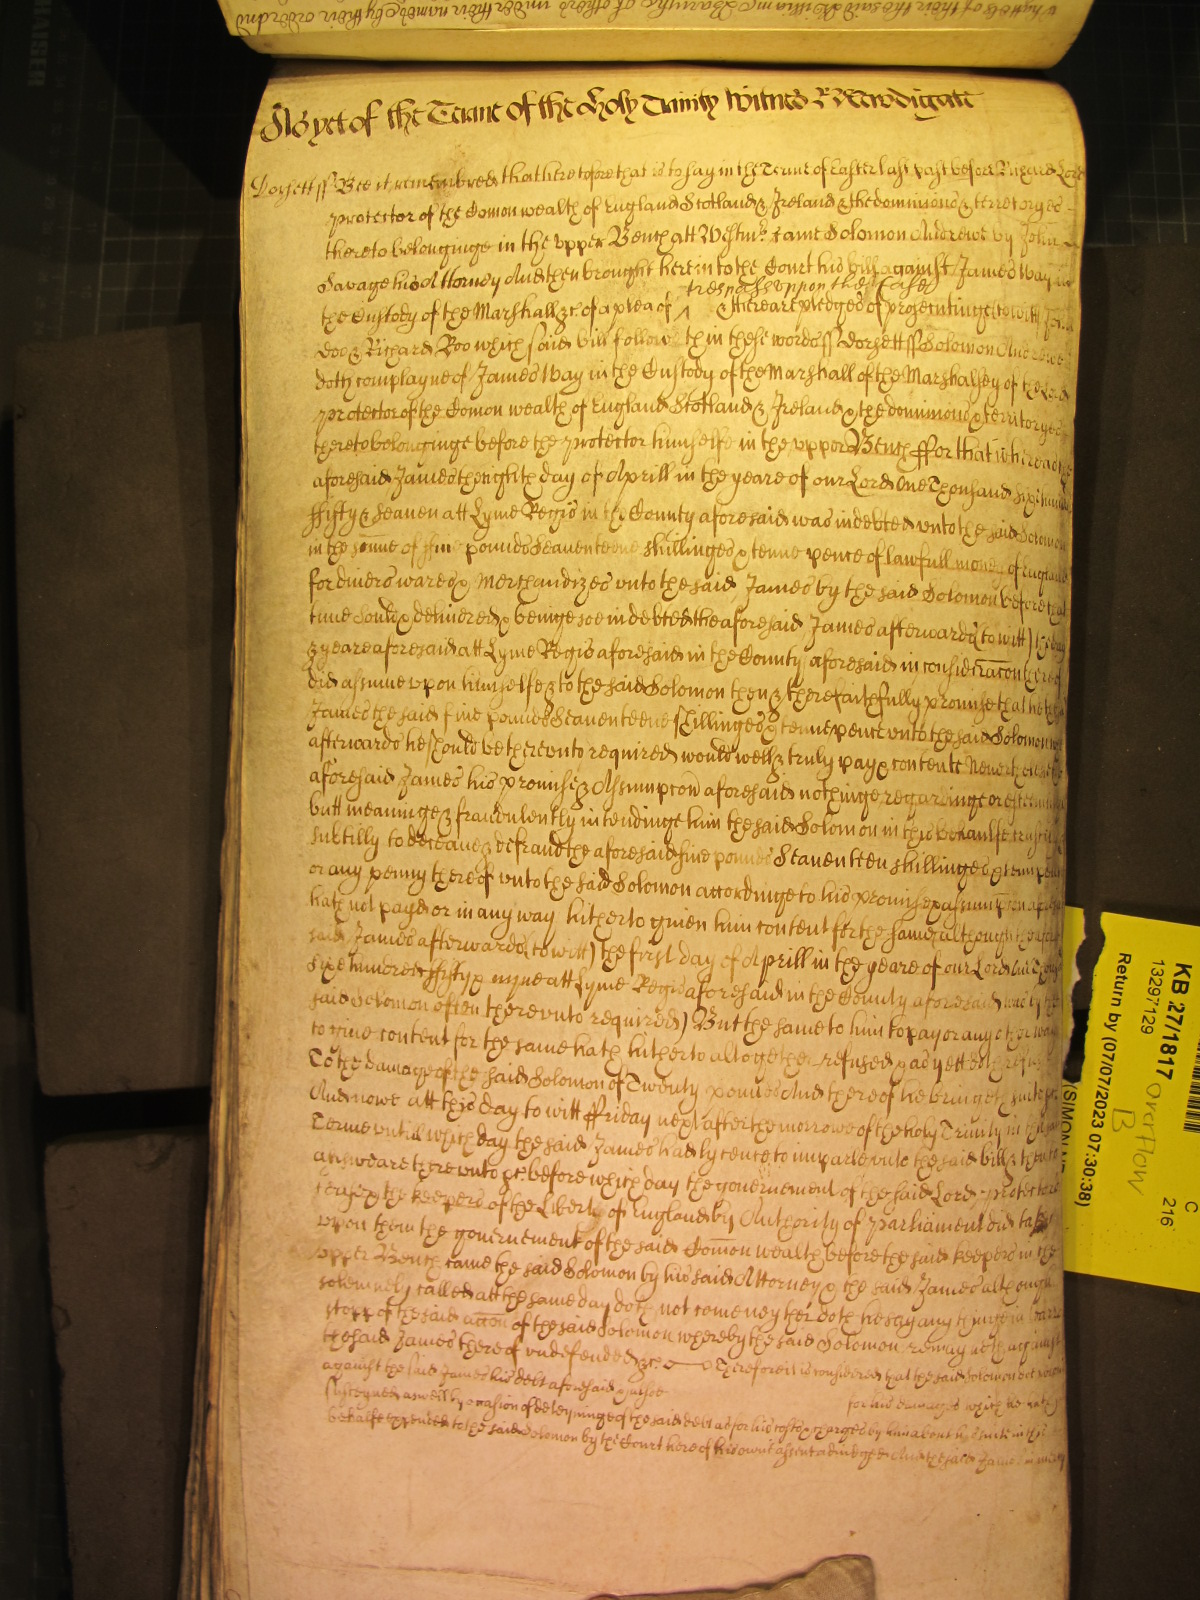 As yet of the Terme of the Holy Trinity Witnes R Newdigate
Dorsett ss Bee it remembred that heretofore that is to say in the Terme of Easter last past before Richard Lord
protector of the Comon wealth of England Scotland & Ireland & the dominions & territoryes
thereto belonginge in the vpper Bench att Westmr. came Solomon Andrewe by John
Savage his Attorney And then brought here into the Court his bill against James Way in
trespasse vppon the Case
the Custody of the Marshall &c. of a plea of ^ & there are pledges of prosecutinge (to witt) John
doo & Richard Roo which said bill followeth in these words ss Dorsett ss Solomon Andrewe
doth complayne of James Way in the Custody of the Marshall of the Marshalsey of the Lord
protector of the Comon wealth of England Scotland & Ireland & the dominions & territoryes
thereto belonginge before the protector himselfe in the vpper Bench ffor that whereas the
aforesaid James the eighth day of Aprill in the yeare of our Lord One Thousand Sixe hundred
ffifty & Seaven att Lyme Regis in the County aforesaid was indebted vnto the said Solomon
in the some of five pounds Seaventeene shillinges & tenne pence of lawfull money of England
for divers wares & Merchandizes vnto the said James by the said Solomon before that
time sould & delivered & beinge soe indebted the aforesaid James afterwards (to witt) the day
& yeare aforesaid att Lyme Regis aforesaid in the County aforesaid in consideracon thereof
did assume vpon himselfe & to the said Solomon then & there faithfully promise that he the said
James the said five pounds Seaventeene shillinges & tenne pence vnto the said Solomon when
afterwards he should be therevnto required would well & truly pay & contente Neverthelesse the
aforesaid James his promise & Assumpcon aforesaid nothinge regardinge or esteeminge
butt meaninge & fraudulently intendinge him the said Solomon in this behaulfe craftily &
subtilly to deceave & defraud the aforesaid five pounds Seaventeen shillinges & tenn pence
or any penny thereof vnto the said Solomon accordinge to his promise & assumpcon aforesaid
hath not payd or in any way hitherto given him content for the same (although the afore
said James afterwards (to witt) the first day of Aprill in the yeare of our Lord One Thousand
Sixe hundred ffifty & nyne att Lyme Regis aforesaid in the County aforesaid was by the
said Solomon often therevnto required) But the same to him to pay or any other way
to give content for the same hath hitherto altogether refused & as yett doth refuse
To the damage of the said Solomon of Twenty pounds And thereof he bringeth suite &c.
And nowe att this day to witt ffriday next after the morrowe of the holy Trinity in this same
Terme vntill which day the said James had lycence to imparle vnto the said bill & then to
answeare therevnto &c. before which day the governement of the said Lord protector
ceasing the keepers of the Liberty of England by Authority of parliament did take
vpon them the governement of the said Comon wealth before the said keepers in the
vpper Bench came the said Solomon by his said Attorney & the said James although
solemnely called att the same day doth not come neyther doth he say any thinge in barre
stopp of the said accon of the said Solomon whereby the said Solomon remayneth against
the said James thereof vndefended &c. Therefore it is considered that the said Solomon doe recover
against the said James his debt aforesaid & alsoe for his damages which he hath
susteyned aswell by occasion of deteyninge of the said debt as for his costs & charges by him about his suite in this
behalfe expended to the said Solomon by the Court here of his owne assent adiudged And the said James in mercy
KB 27/1817
13297129
Overflow
B
C
216
Return by (07/07/2023 07:30:38)